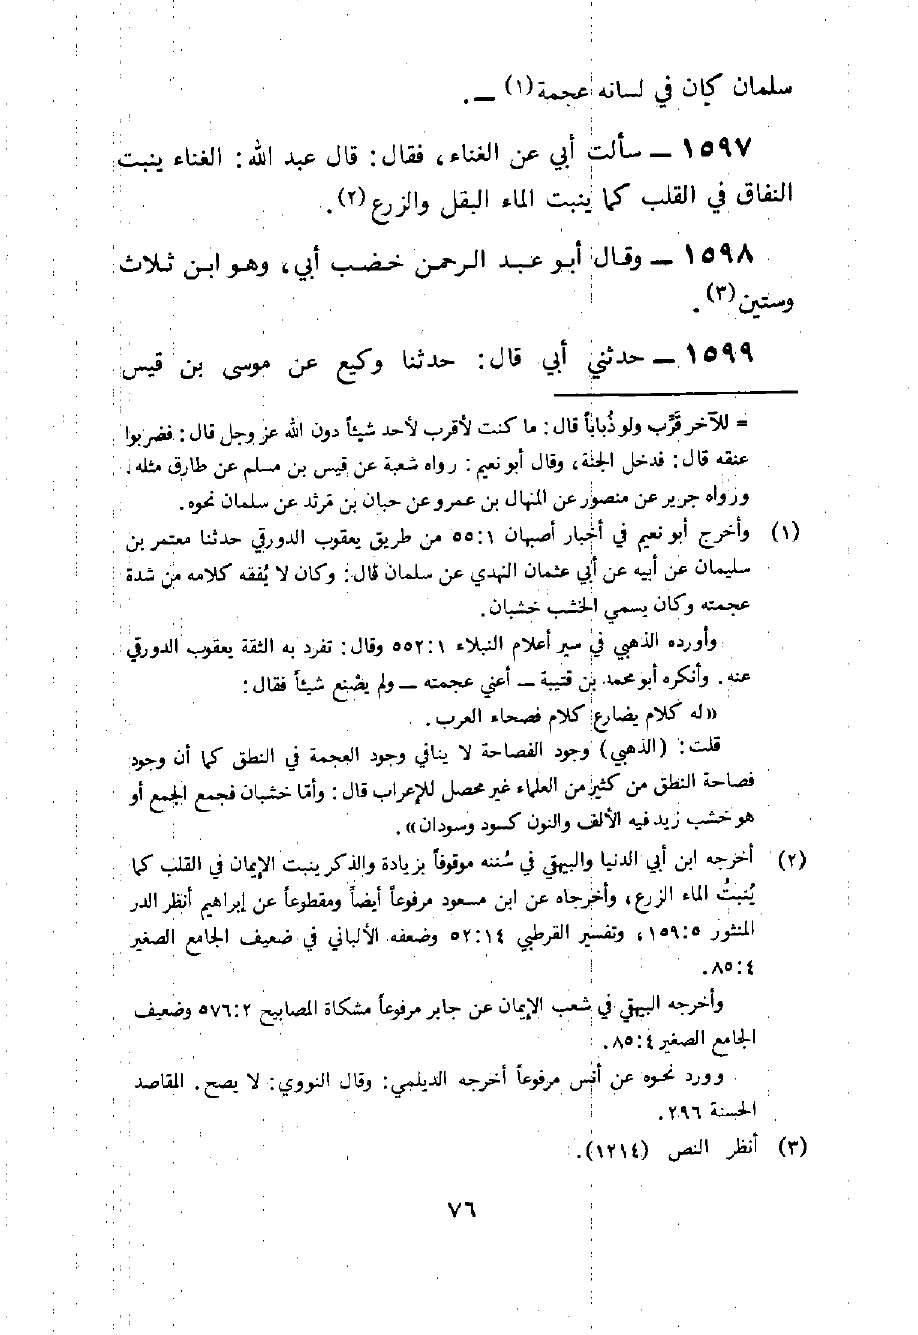 سلمان كان في لسانه عجمة(١) ــ.
١٥٩٧ ــ سألت أبي عن الغناء، فقال: قال عبد الله: الغناء ينبت
النفاق في القلب كما ينبت الماء البقل والزرع(٢).
١٥٩٨ ــ وقال أبو عبد الرحمن خضب أبي، وهو ابن ثلاث
وستين(٣).
١٥٩٩ ــ حدثني أبي قال: حدثنا وكيع عن موسى بن قيس
= للآخر قَرِّب ولو ذُباباً قال: ما كنت لأقرب لأحد شيئاً دون الله عز وجل قال: فضربوا
عنقه قال: فدخل الجنة، وقال أبو نعيم: رواه شعبة عن قيس بن مسلم عن طارق مثله.
ورواه جرير عن منصور عن المنهال بن عمرو عن حبان بن مرثد عن سلمان نحوه.
(١) وأخرج أبو نعيم في أخبار أصبهان ٥٥:١ من طريق يعقوب الدورقي حدثنا معتمر بن
سليمان عن أبيه عن أبي عثمان النهدي عن سلمان قال: وكان لا يُفقه كلامه من شدة
عجمته وكان يسمي الخشب خشبان.
وأورده الذهبي في سير أعلام النبلاء ٥٥٢:١ وقال: تفرد به الثقة يعقوب الدورقي
عنه. وأنكره أبو محمد بن قتيبة ــ أعني عجمته ــ ولم يصنع شيئاً فقال:
«له كلام يضارع كلام فصحاء العرب.
قلت: (الذهبي) وجود الفصاحة لا ينافي وجود العجمة في النطق كما أن وجود
فصاحة النطق من كثير من العلماء غير محصل للإعراب قال: وأمّا خشبان فجمع الجمع أو
هو خشب زيد فيه الألف والنون كسود وسودان».
(٢) أخرجه ابن أبي الدنيا والبيهقي في سُننه موقوفاً بزيادة والذكر ينبت الإيمان في القلب كما
يُنبتُ الماء الزرع، وأخرجاه عن ابن مسعود مرفوعاً أيضاً ومقطوعاً عن إبراهيم أنظر الدر
المنثور ١٥٩:٥، وتفسير القرطبي ٥٢:١٤ وضعفه الألباني في ضعيف الجامع الصغير
٨٥:٤.
وأخرجه البيهقي في شعب الإيمان عن جابر مرفوعاً مشكاة المصابيح ٥٧٦:٢ وضعيف
الجامع الصغير ٨٥:٤.
وورد نحوه عن أنس مرفوعاً أخرجه الديلمي: وقال النووي: لا يصح. المقاصد
الحسنة ٢٩٦.
(٣) أنظر النص (١٢١٤).
٧٦